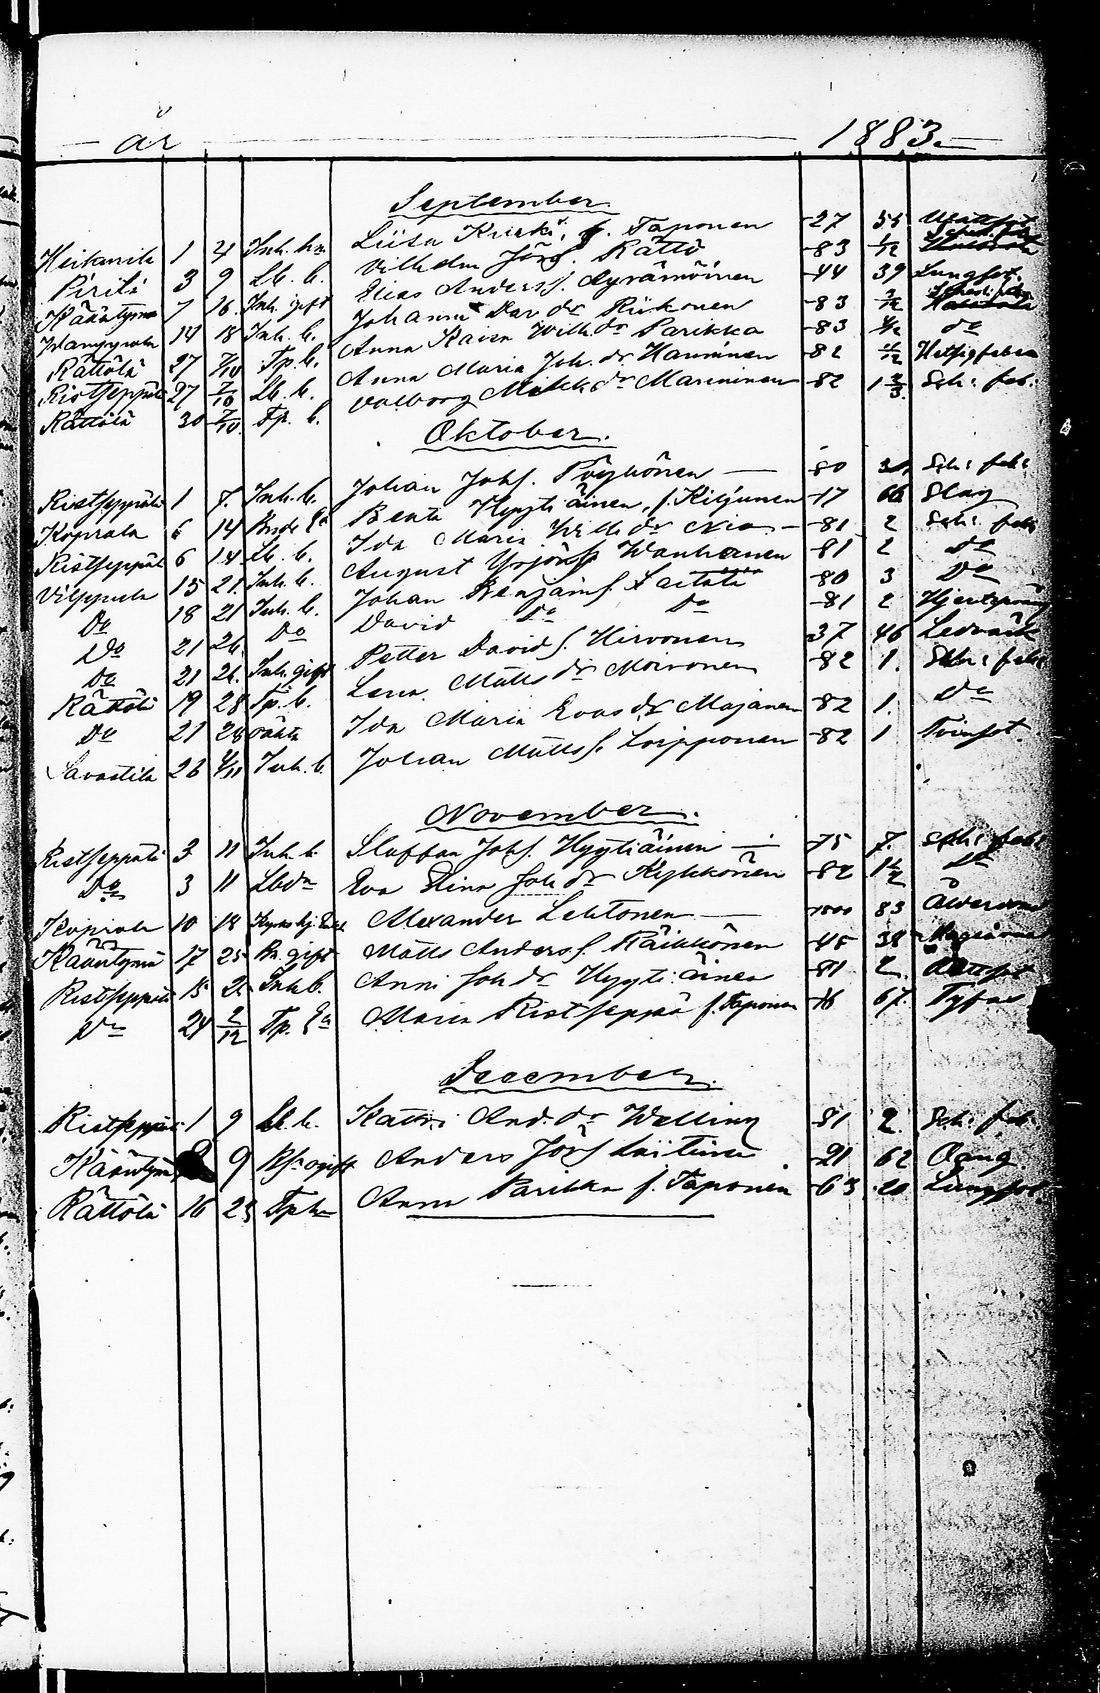 år 1883.
September
Heikkilä 1 4 Inh. hu Liisa Kriski, f. Taponen -27 55
Pirilä 3 9 Lb. b. Vilhelm Jörs. Rättö -83 1/12
Kääntymä 7 16. Inh. gift Elias Anderss. Äyrämöinen -44 39 Lungsot.
14 18 Inh. b. Johanna Dav. dr Riikonen -83
Rättölä 27 7/10 Tp. b. Anna Kaisa Wilh. dr Parikka -83 do
Ristseppälä 27 7/10 Lb. b. Anna Maria Joh. dr Hanninen -82 Hetsig feber
Rättölä 30 7/10. Tp. b. Valborg Mich. dr Marininen -82 1 2/3 Sch: feb.
Oktober.
Ristseppälä 1 7. Inh. b. Johan Johs. Pöyhönen -80 Sch: feb:
Koprala 6 14 Enka Beata Hyytiäinen, f. Kiljunen -17 66 Slag
Ristseppälä 6 14 Lb. b. Ida Maria Wilh. dr -81 2 Sch: feb:
Vilppula 15 21. Inh. b. August Yrjöns. Wanhanen -81 2 Do
Do 18 21 Inh. b. Johan Benjams. Laitala -80 3 Do
Do 21 26. Do David Do Do -81 2
Do 21 26. Inh. gift Petter Davids. Hirvonen -37 46
Rättölä 19 28 Tp. b. Lena Matts dr Moivonen -82 1. Sch: feb:
Do 21 28 Ida Maria Evas dr Majanen -82 1. Do
Savastila 26 4/11 Inh. b. Johan Matts f. Loipponen -82 1 Tvinsot.
November.
Ristseppälä 3 11 Inh. b. Staffan Johs. Hyytiäinen -75 7. Sch: feb:
Do 3 11 Lbdr Eva Stina Joh. dr Kykkönen -82 1 1/2 Do
Koprala 10 18 Alexander Lehtonen 1800 83 Ålderdom
Kääntymä 17 25 Bn. gift Matts Anders f. Räikkönen -45 38
Ristseppälä 15 2. Inh b. Anni Joh dr Hyytiäinen -81 2.
Do 24 2/12 Tp. Ea Maria Ristseppä f. Taponen -16 67. Tyfus
December.
Ristseppälä 1 9 Lb. b. Katri And. dr Welling -81 2. Sch: feb.
Kääntymä 9 Anders Jörs Liitiäi -21 62
Rättölä 16 23 Anna Parikka f. Taponen -63 20 Lungsot.